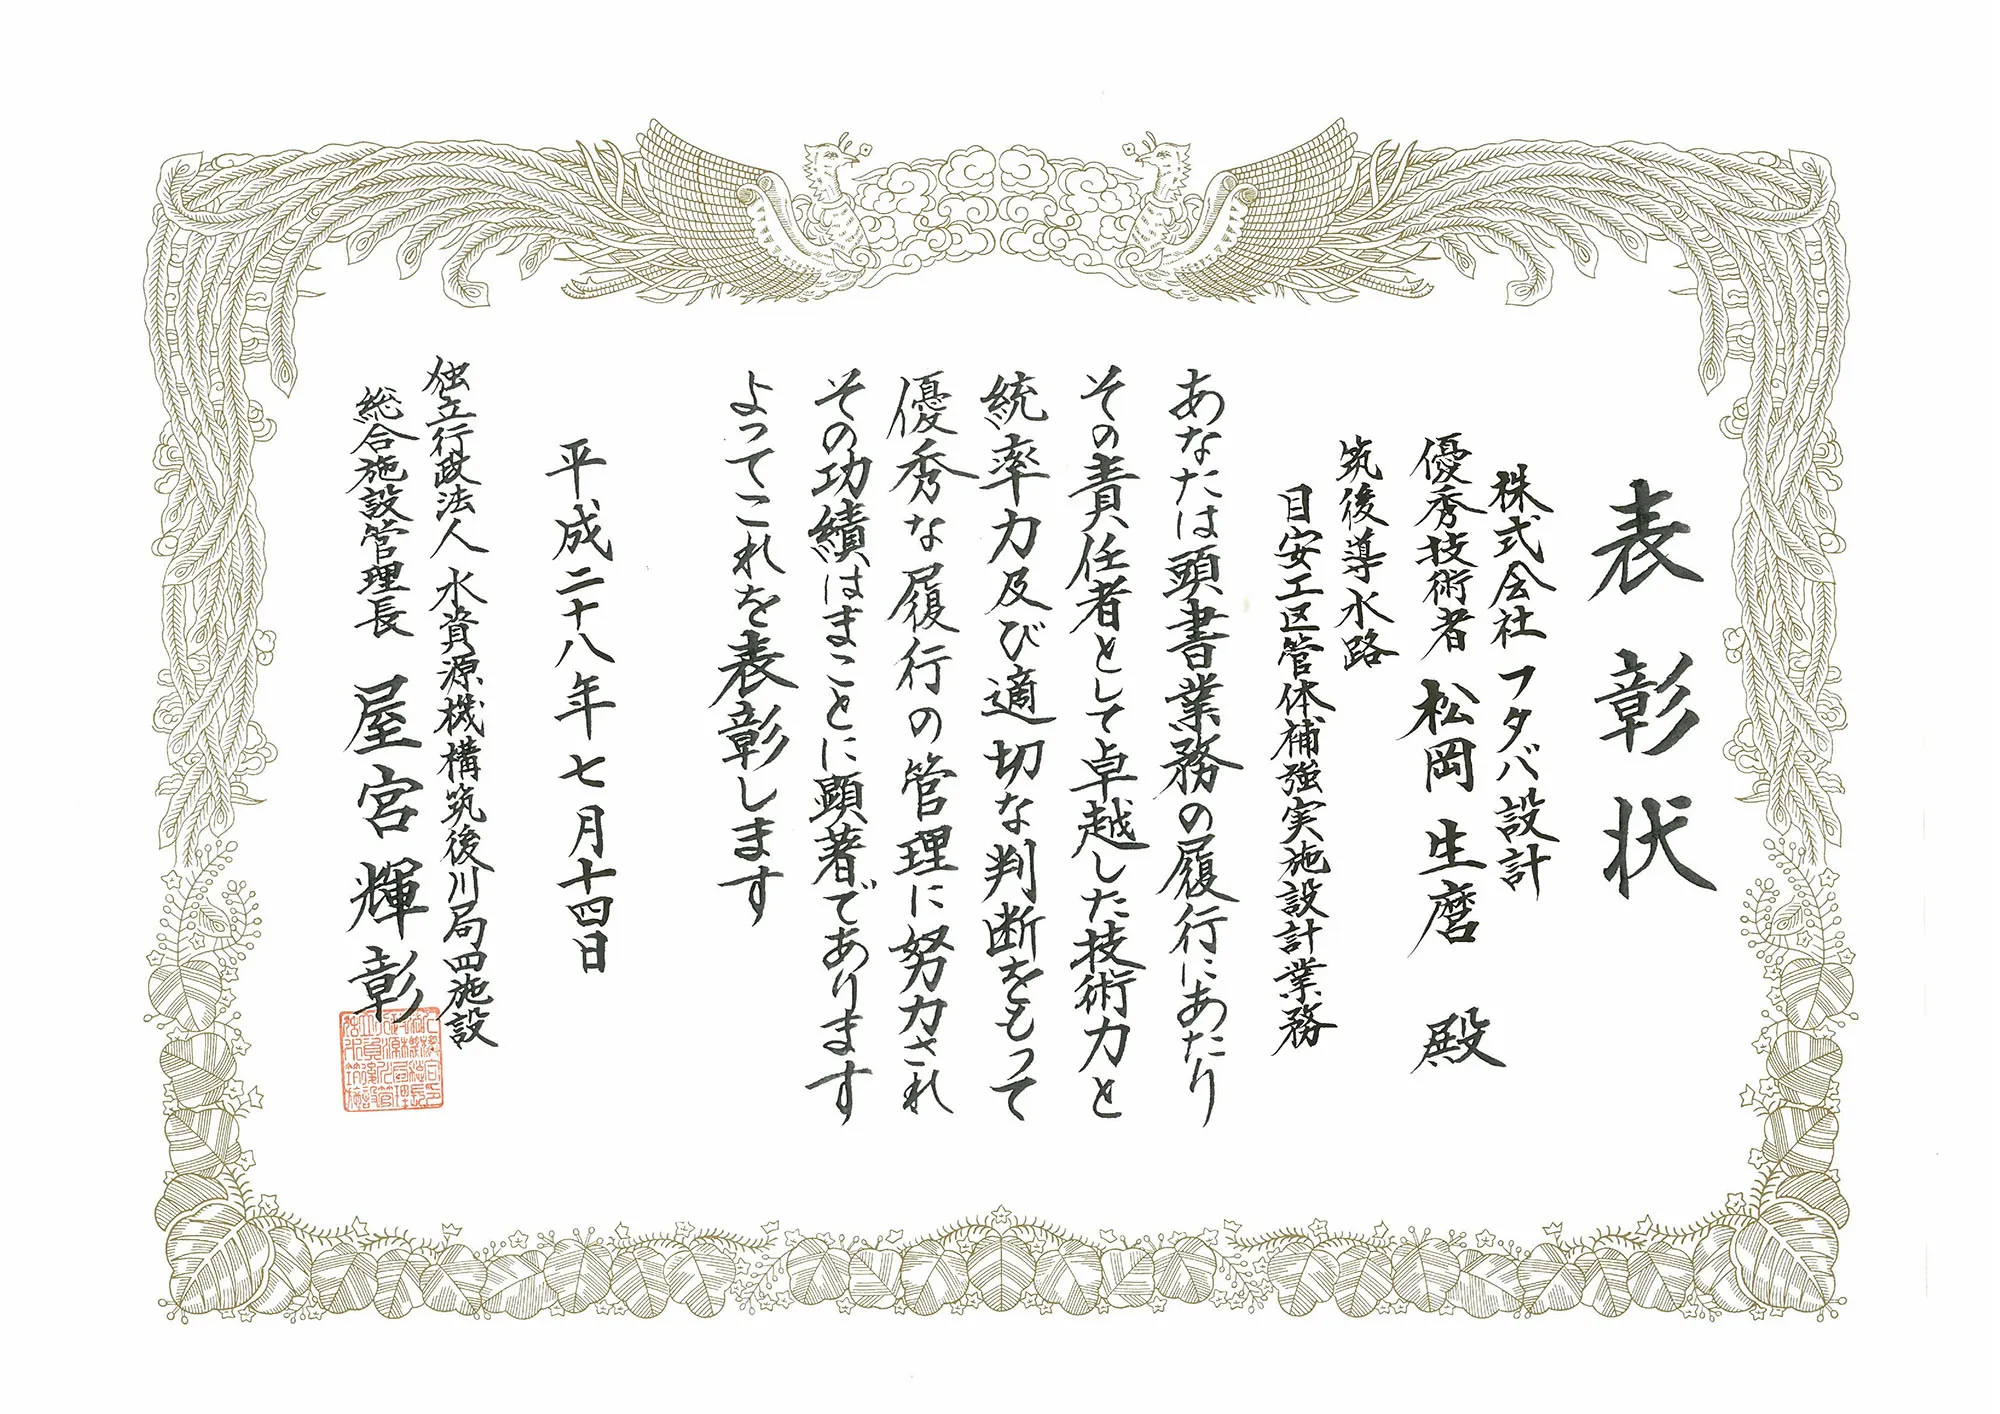 表彰状
株式会社 フタバ設計
優秀技術者 松岡 生麿 殿
筑後導水路
目安工区管体補強実施設計業務
あなたは頭書業務の履行にあたり
その責任者として卓越した技術力と
統率力及び適切な判断をもって
優秀な履行の管理に努力され
その功績はまことに顕著であります
よってこれを表彰します
平成二十八年七月十四日
独立行政法人 水資源機構筑後川局四施設
総合施設管理長 屋宮 輝彰